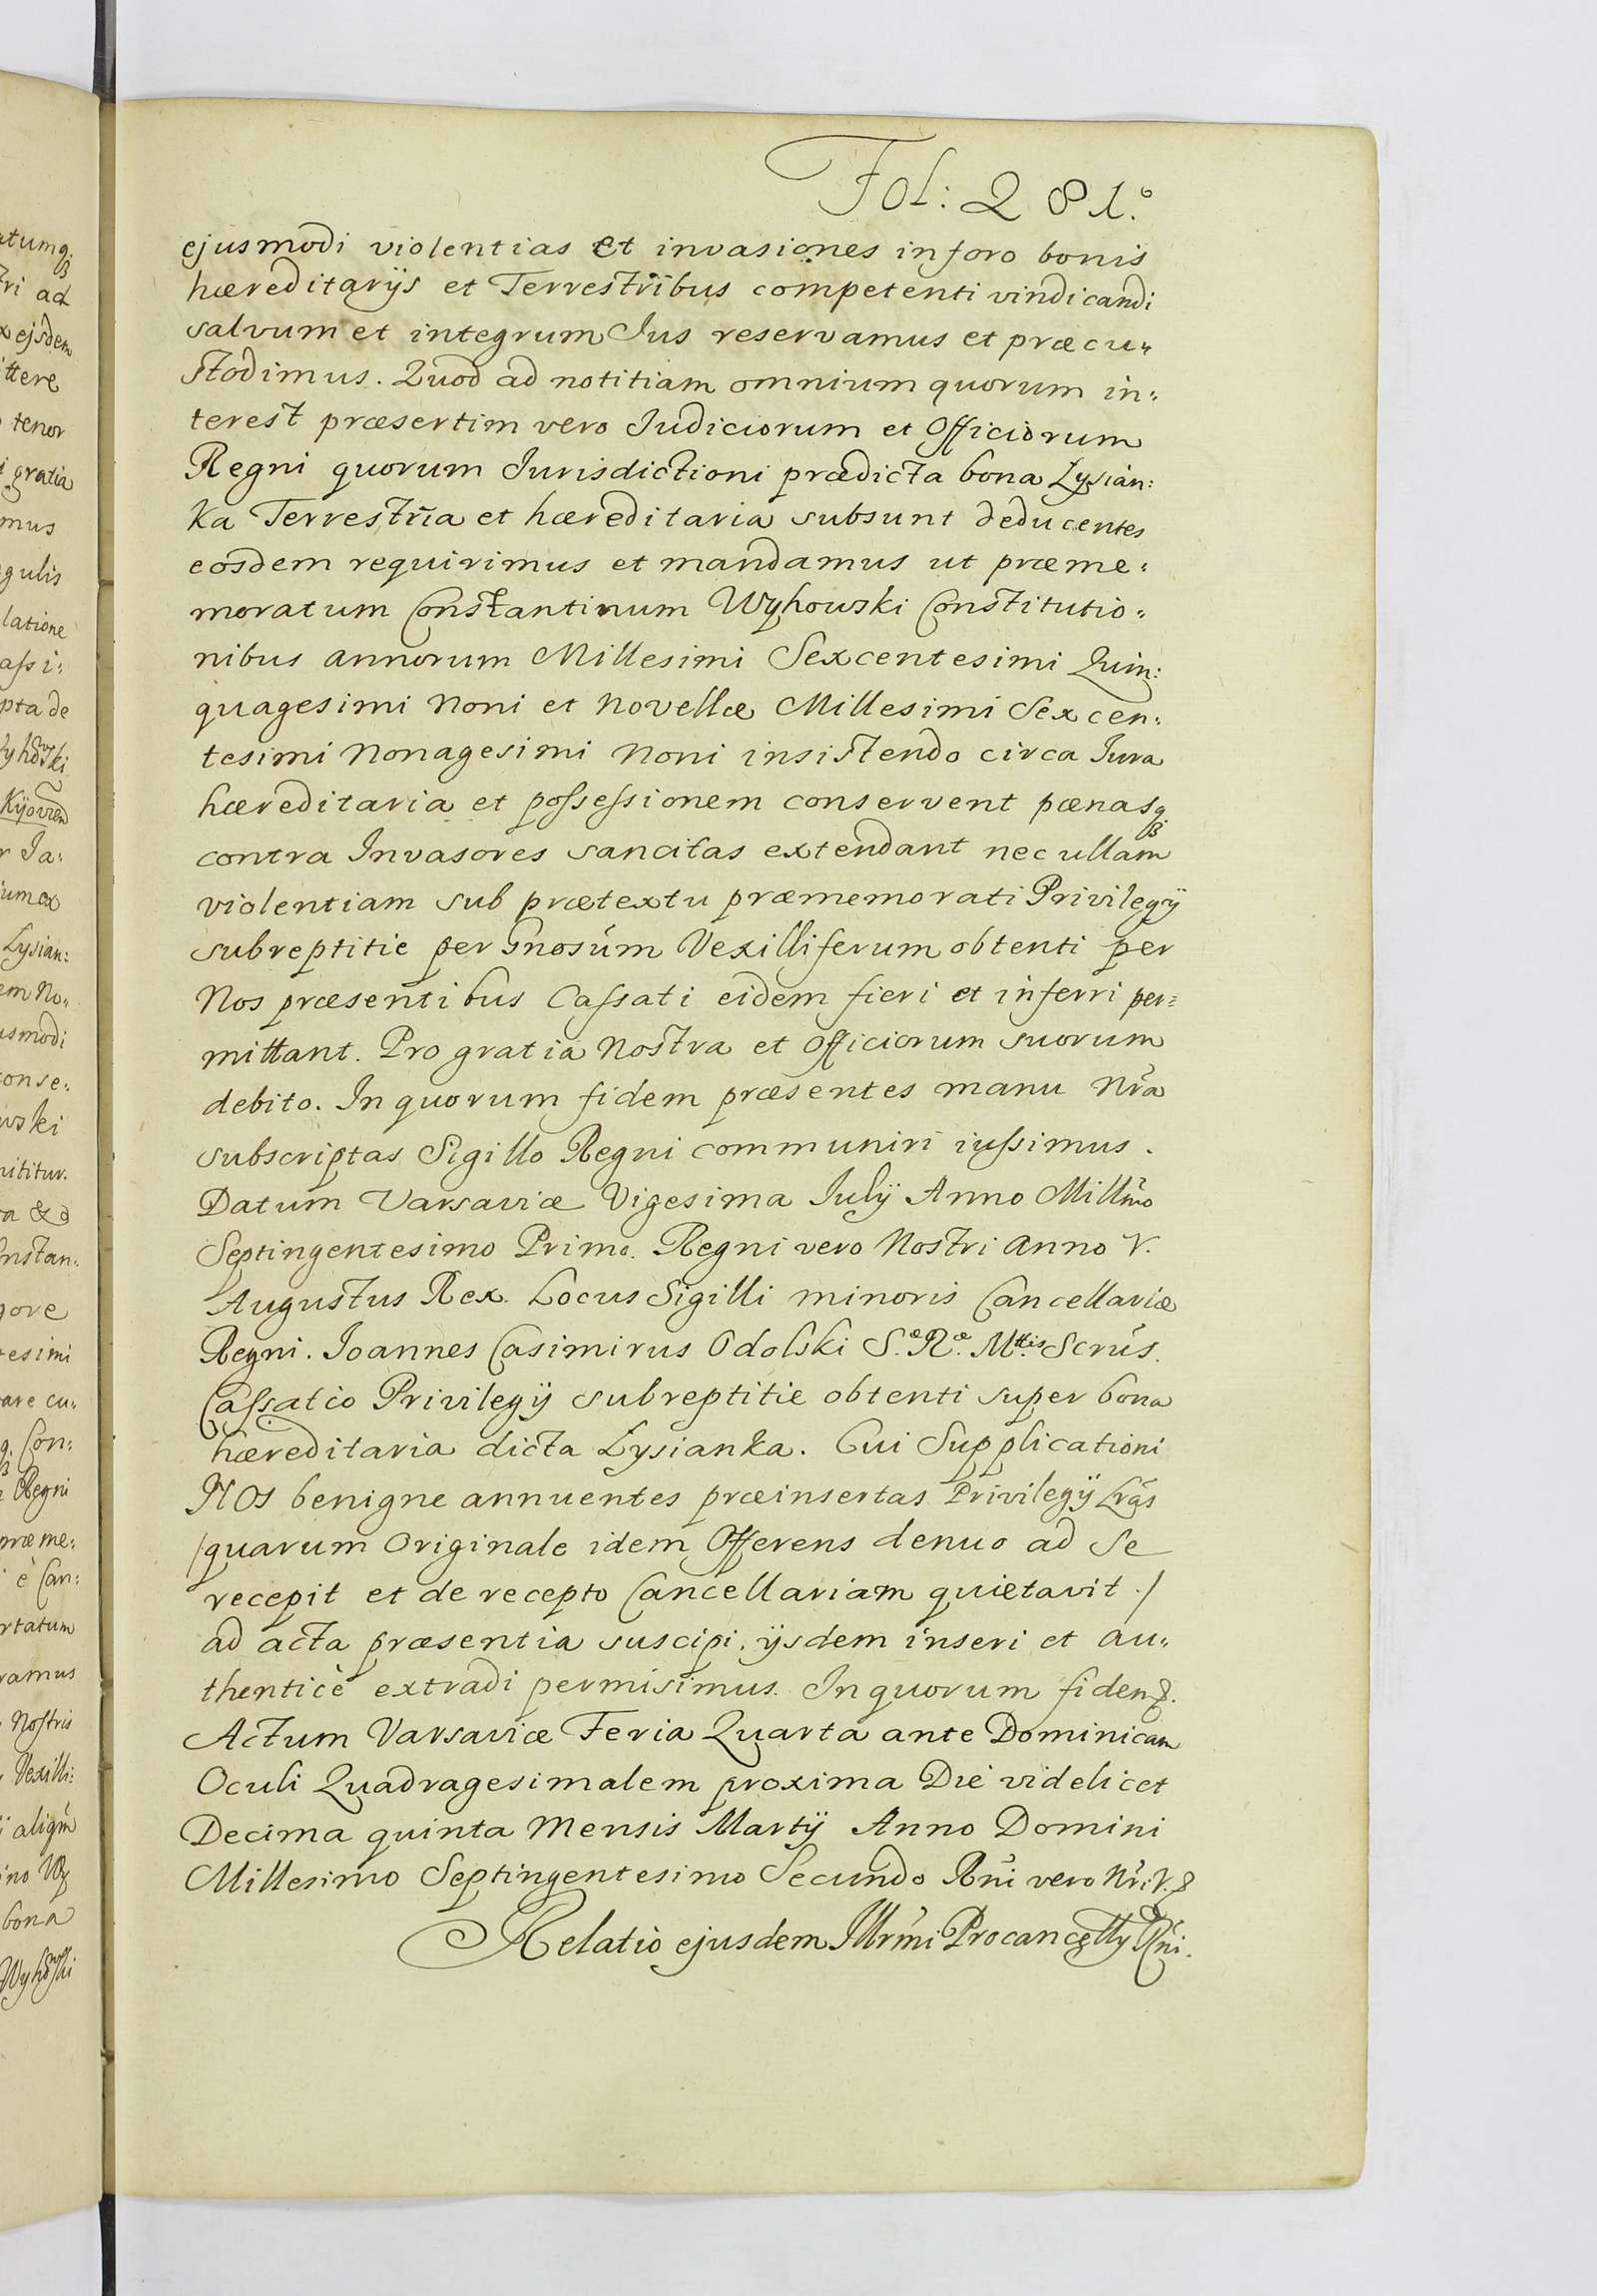 Fol: 281.
ejusmodi violentias et invasiones in foro bonis
hæreditarijs et Terrestribus competenti vindicandi
salvum et integrum Jus reservamus et præcu„
stodimus. Quod ad notitiam omnium quorum in„
terest præsertim vero Judiciorum et Officiorum
Regni quorum Jurisdictioni prædicta bona Lysian:
ka Terrestria et hæreditaria subsunt deducentes
eosdem requirimus et mandamus ut præme„
moratum Constantinum Wyhowski Constitutio„
nibus annorum Millesimi Sexcentesimi Quin:
quagesimi Noni et Novellæ Millesimi Sexcen„
tesimi Nonagesimi Noni insistendo circa Jura
hæreditaria et possessionem conservent pænasq
contra Invasores sancitas extendant nec ullam
violentiam sub prætextu præmemorati Privilegij
subreptitie per Gnosum Vexilliferum obtenti per
Nos præsentibus Cassati eidem fieri et inferri per=
mittant. Pro gratia Nostra et Officiorum suorum
debito. In quorum fidem præsentes manu Nra
subscriptas Sigillo Regni communiri iussimus.
Datum Varsaviæ Vigesima July Anno Millmo
Septingentesimo Primo. Regni vero Nostri Anno V.
Augustus Rex. Locus Sigilli minoris Cancellariæ
Regni. Joannes Casimirus Odolski S. R. Mttis Scrus.
Cassatio Privilegij subreptitie obtenti super bona
hæreditaria dicta Lysianka. Cui Supplicationi
NOs benigne annuentes præinsertas Privilegij Lras
/quarum Originale idem Offerens denuo ad se
recepit et de recepto Cancellariam quietavit./
ad acta præsentia suscipi, ijsdem inseri et au„
thenticè extradi permisimus. In quorum fidem
Actum Varsaviæ Feria Quarta ante Dominicam
Oculi Quadragesimalem proxima Die videlicet
Decima quinta Mensis Martij Anno Domini
Millesimo Septingentesimo Secundo Rni vero Nri V.
Relatio ejusdem Illrmi Procancelly Rni.